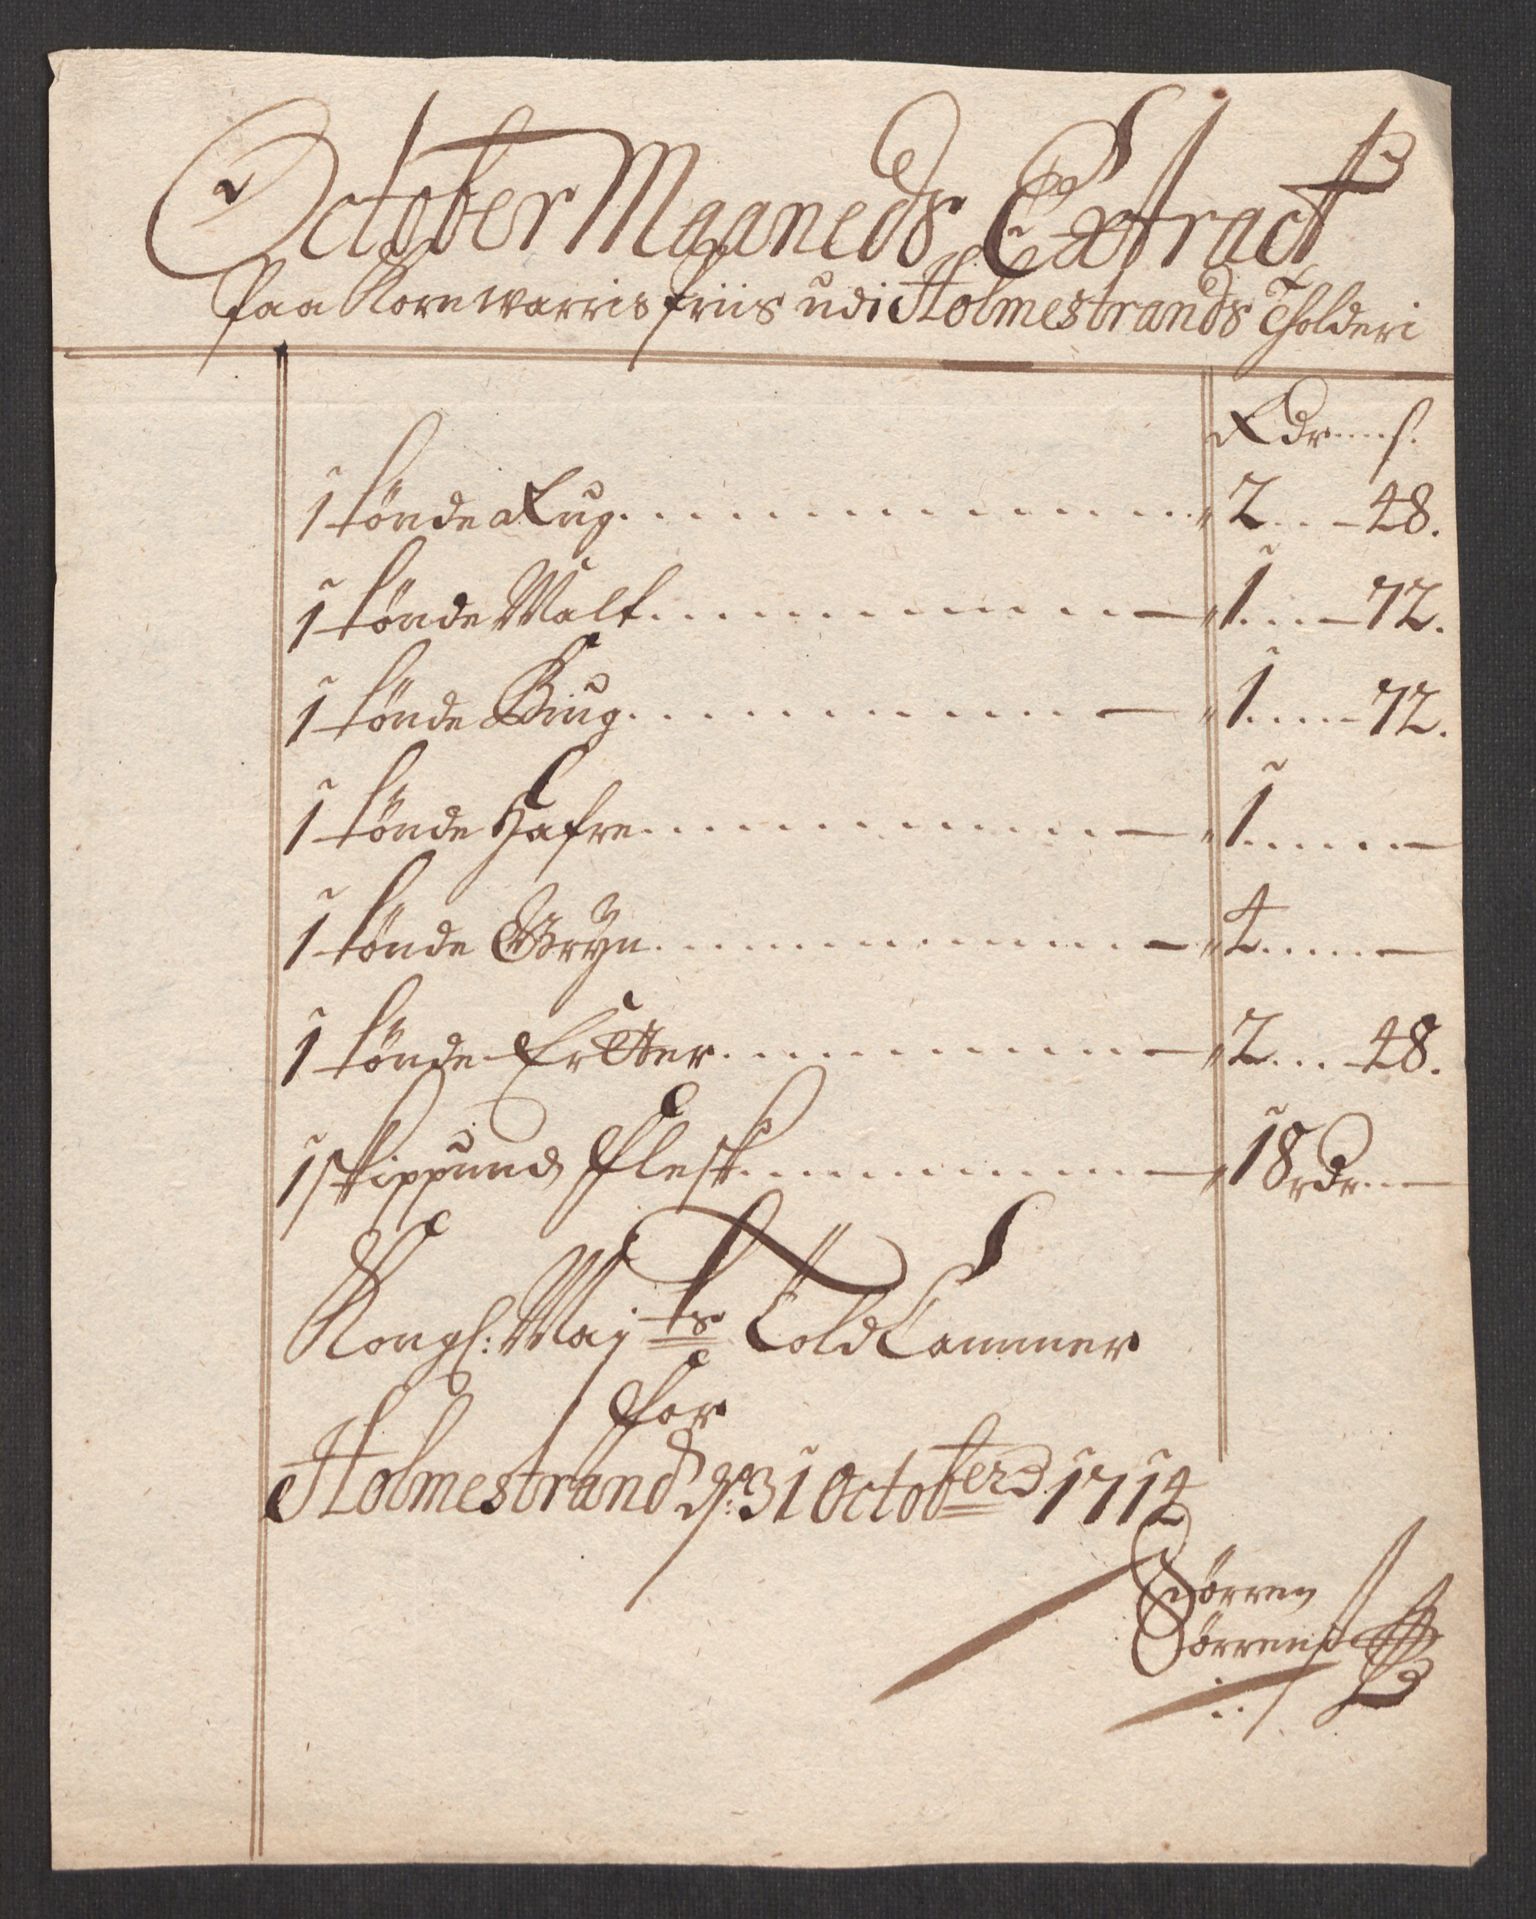 October Maaneds Extract
paa Kornwarris priis udi Holmestrands Tholderi
Rdr....s.
1 tönde Rug. . . . . . . . . . . . . . . 2 . . . 48.
1 tönde Malt. . . . . . . . . . . . . 1 . . . 72.
1 tönde Biug. . . . . . . . . . . . . 1 . . . . 72.
1 tönde Hafre. . . . . . . . . . . . 1 . . . . . —
1 tönde Grÿn. . . . . . . . . . . . . 4 . . . . . —
1 tönde Ertter. . . . . . . . . . . . 2 . . . 48.
1 skippund Flesk. . . . . . . . . . 18 rdr . . —
Kongl: Maÿts Told Cammer
for
Holmestrand d: 31 Octobers 1714
Sörren
Sörrens